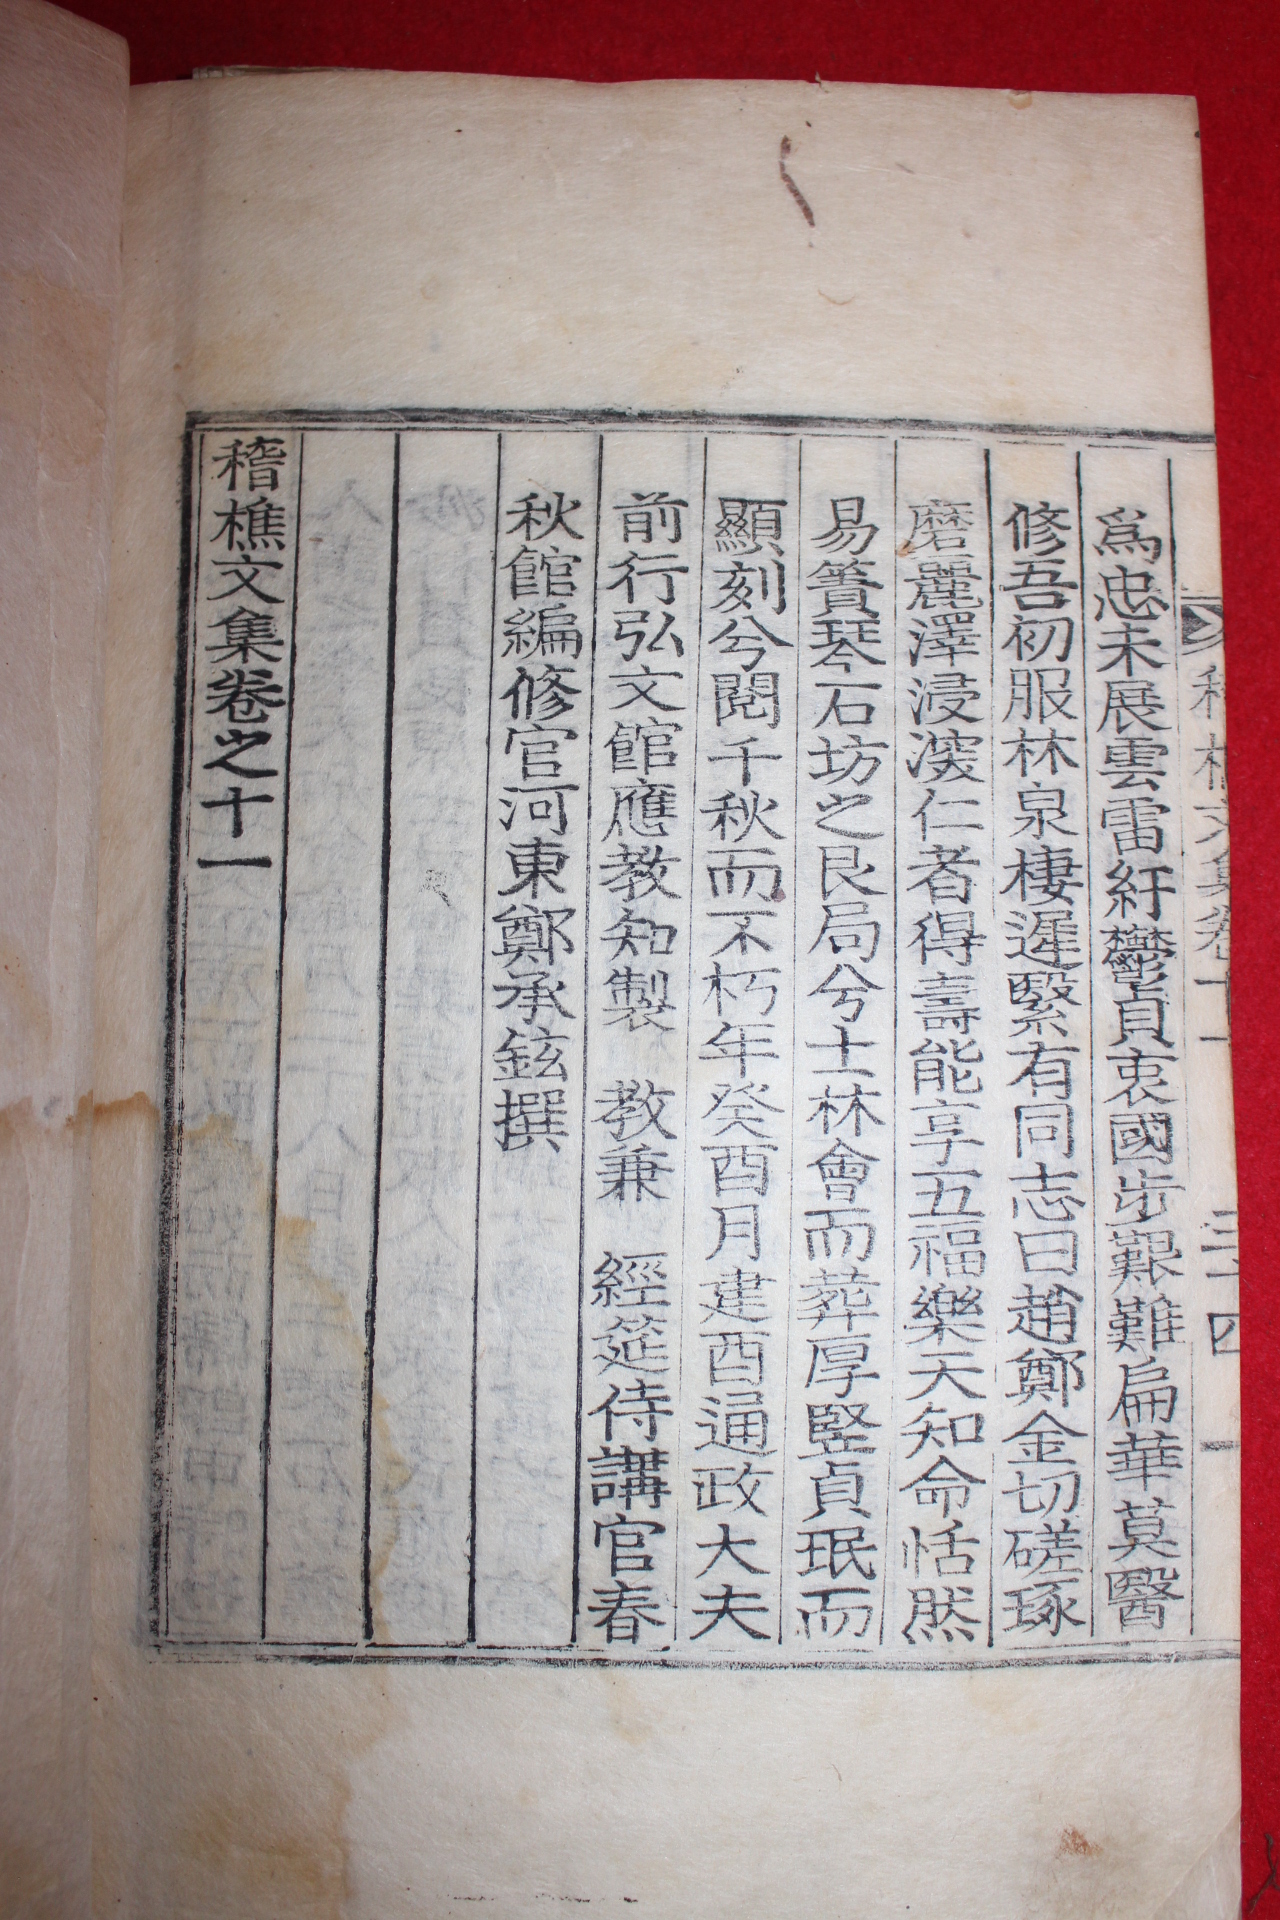 爲忠未展雲雷紆鬱貞衷國步艱難扁華莫醫
修吾初服林泉棲遲繄有同志曰趙鄭金切磋琢
磨麗澤浸深仁者得壽能享五福樂天知命恬然
易簀琴石坊之艮局兮士林會而葬厚竪貞珉而
顯刻兮閱千秋而不朽年癸酉月建酉通政大夫
前行弘文館應教知製 教兼 經筵侍講官春
秋館編修官河東鄭承鉉撰
稽樵文集卷之十一